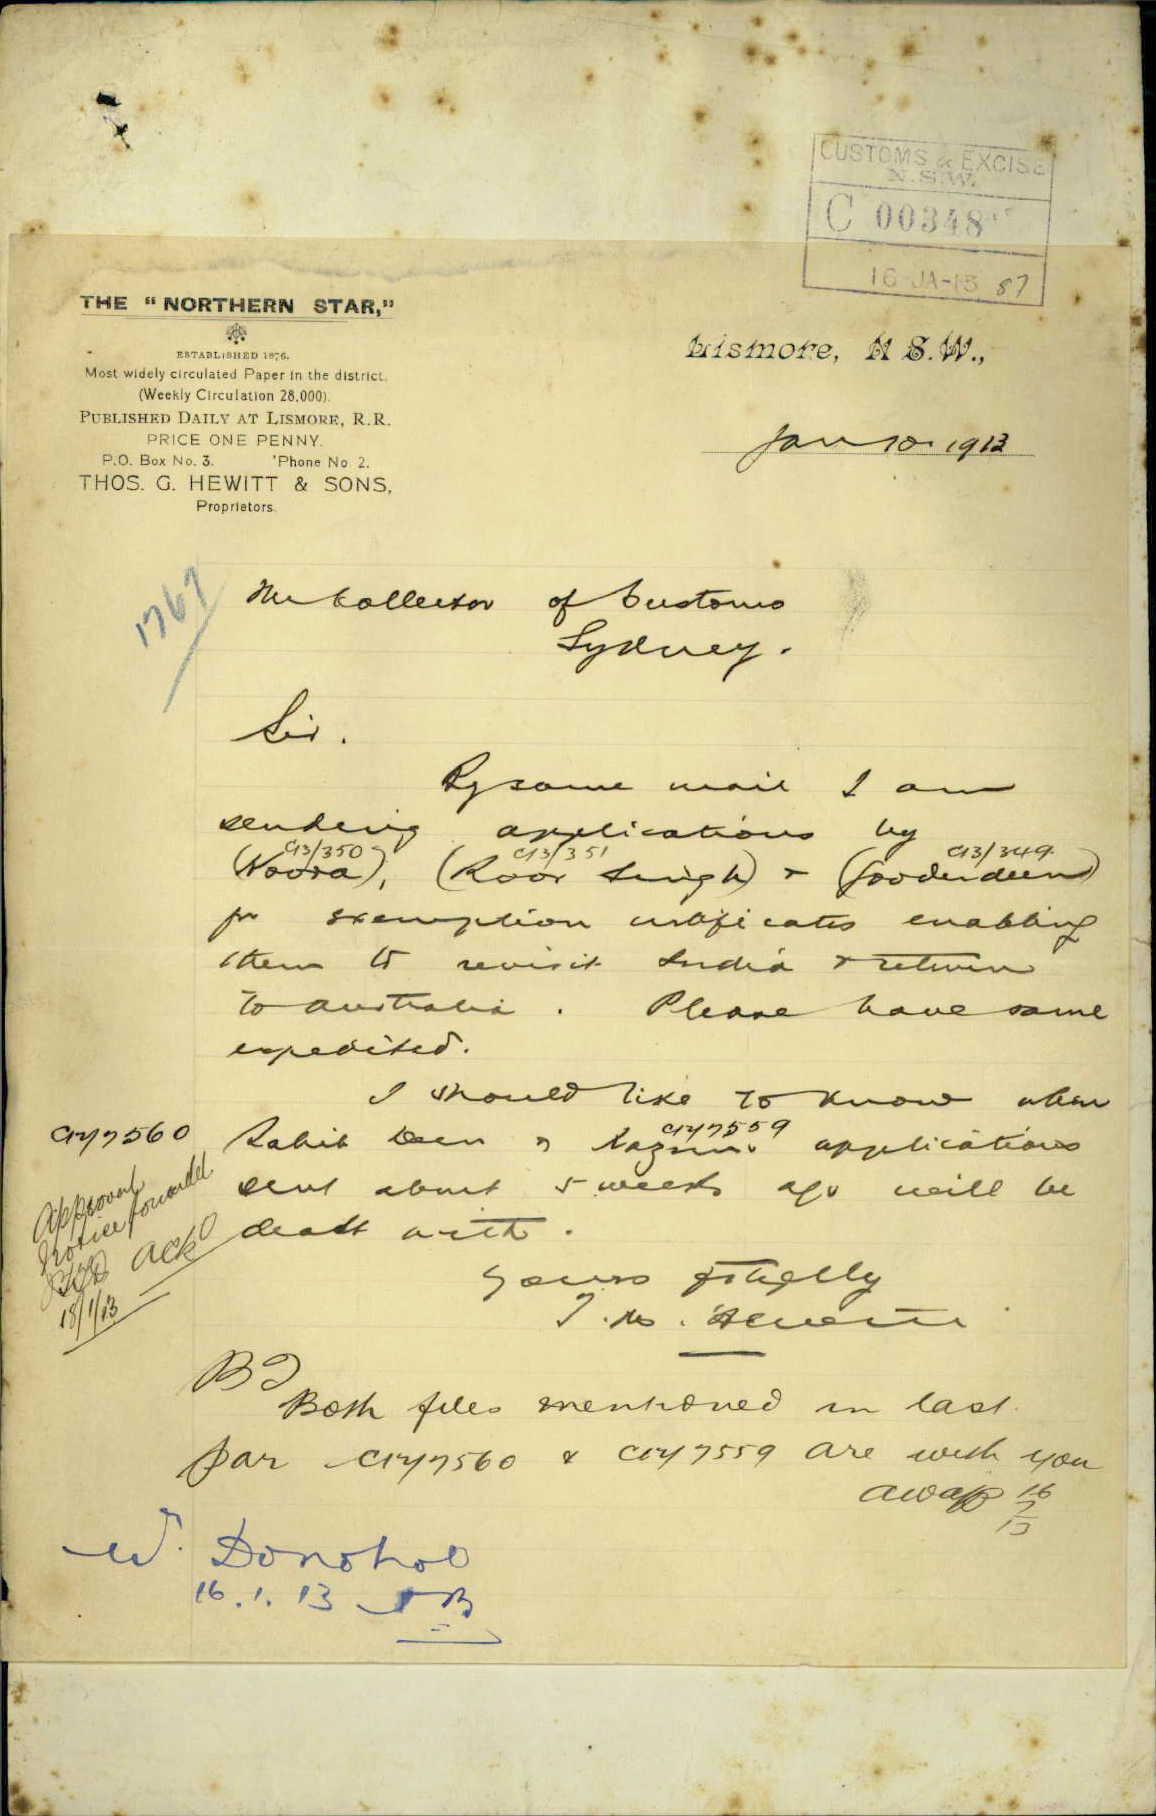 CUSTOMS & EXCISE
N.S.W.
C 00348
16-JA-13 87
THE "NORTHERN STAR,"
ESTABLISHED 1876.
Most widely circulated Paper in the district.
(Weekly Circulation 28,000).
PUBLISHED DAILY AT LISMORE, R.R.
PRICE ONE PENNY.
P.O. Box No. 3. 'Phone No 2.
THOS. G. HEWITT & SONS,
Proprietors.
Lismore, N S.W.,
Jan 10 1913
1767
The Collector of Customs
Sydney.
Sir.
By same mail I am
sending applications by
C13/350 C13/351 C13/349
(Noora), (Roor Singh) + (Gooderdeen)
for exemption certificates enabling
them to revisit India & return
to Australia. Please have same
expedited.
I should like to know when
C12/7560 C12/7559
Sahib Deen & applications
sent about 5 weeks ago will be
dealt with.
Approval
notice forwarded
Ackd
18/1/13
Yours ffthflly
T. M. Hewitt
Both files mentioned in last
par C12/7560 & C12/7559 are with you
16
13
W. Donohoe
16.1.13